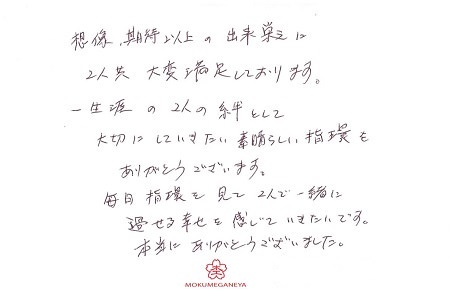 想像、期待以上の出来栄えに
2人共大変満足しております。
一生涯の2人の絆として
大切にしていきたい素晴らしい指環を
ありがとうございます。
毎日指環を見て2人で一緒に
過せる幸せを感じていきたいです。
本当にありがとうございました。
MOKUMEGANEYA